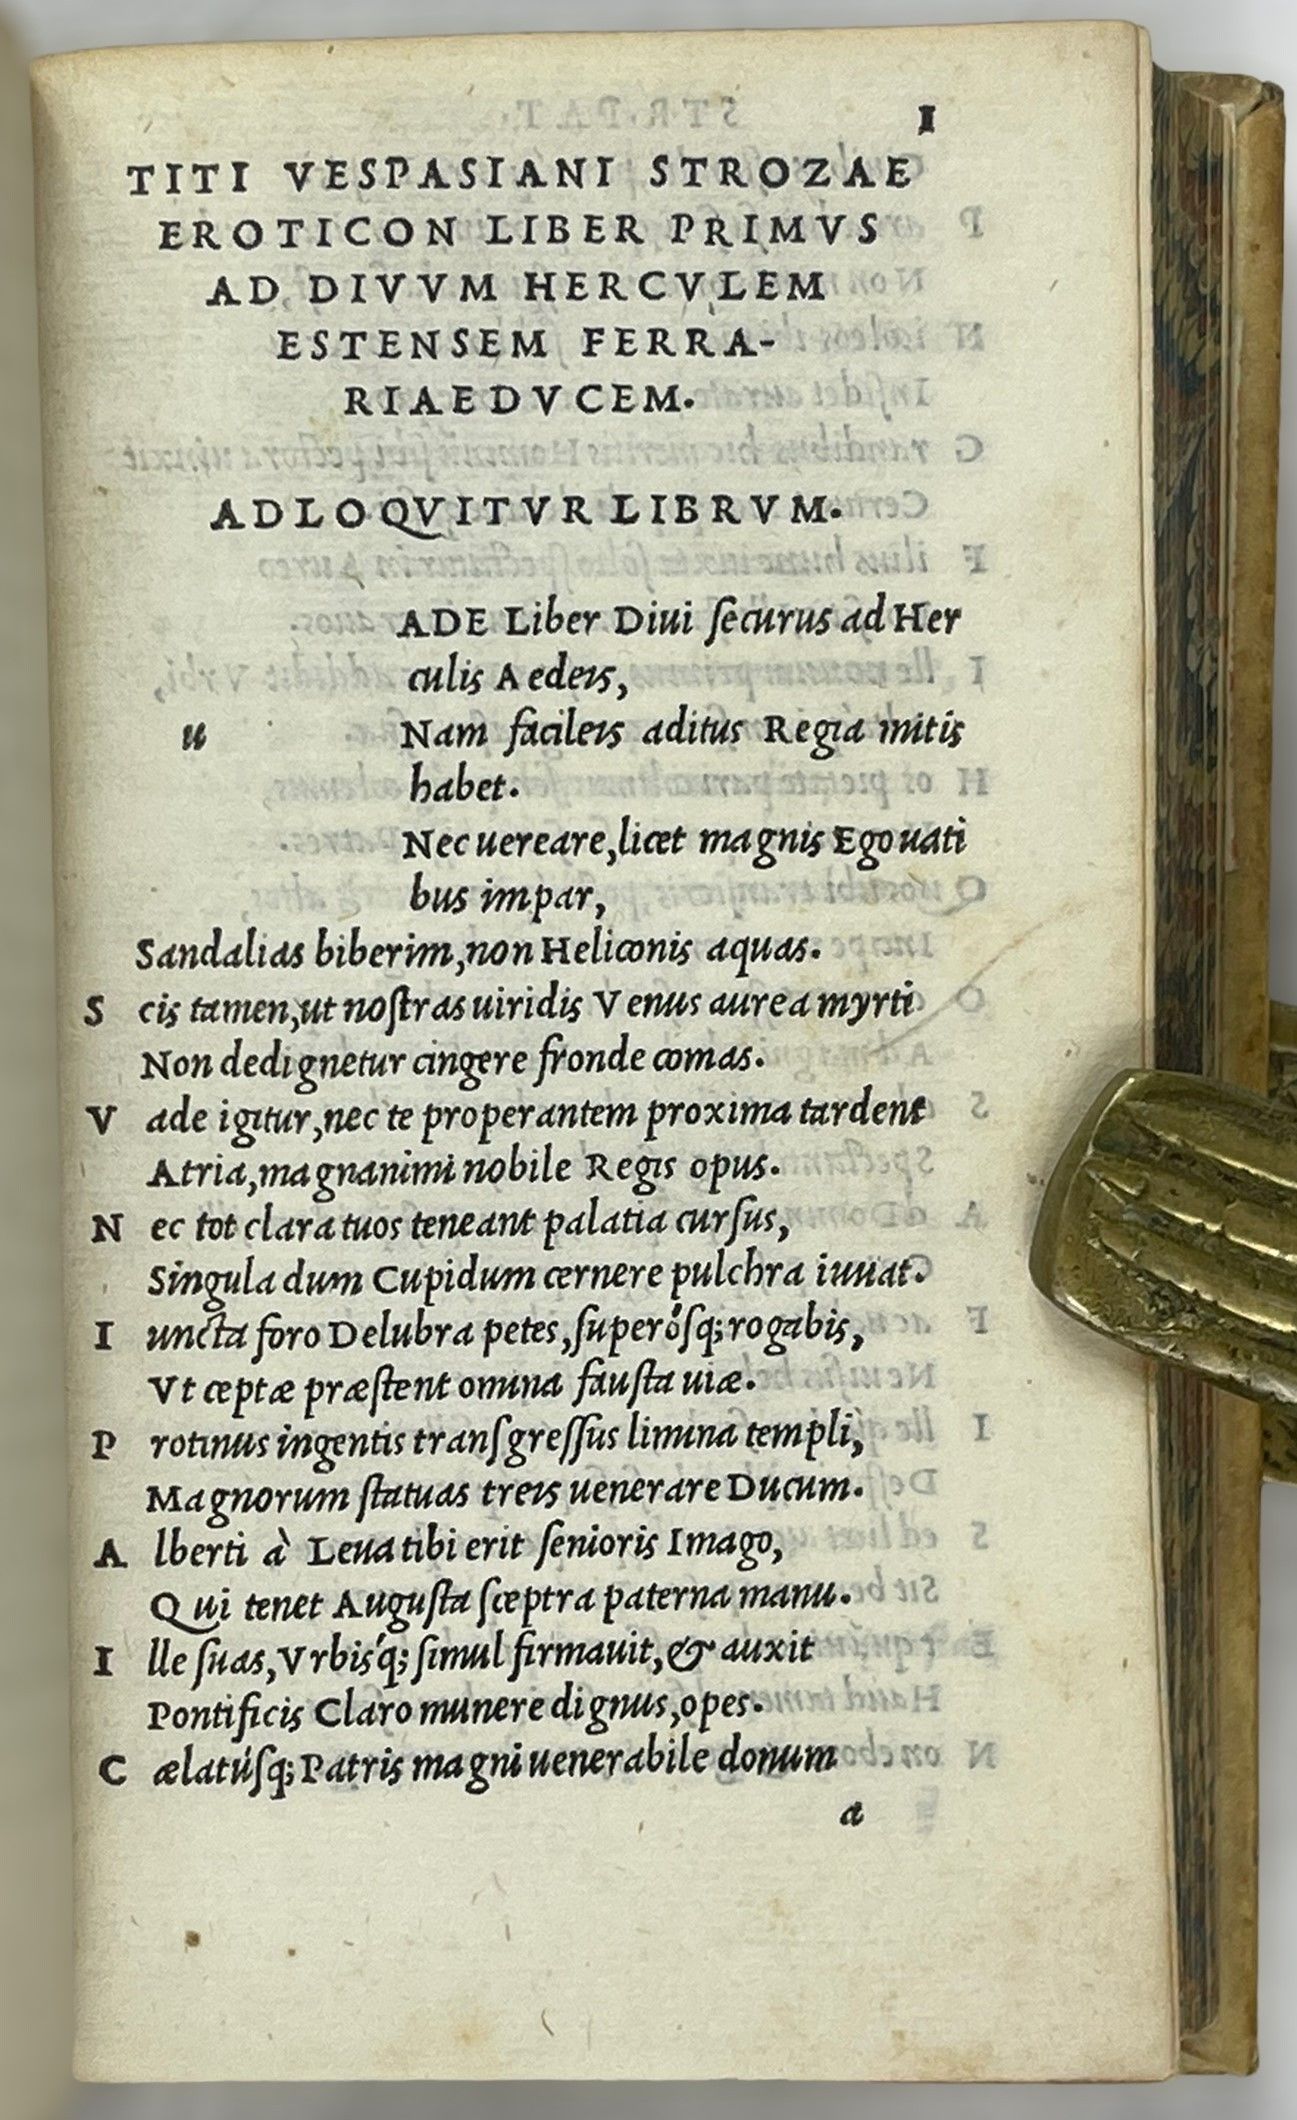 1
TITI VESPASIANI STROZAE
EROTICON LIBER PRIMVS
AD DIVVM HERCVLEM
ESTENSEM FERRA-
RIAEDVCEM.
ADLOQVITVR LIBRVM.
ADE Liber Diui ſecurus ad Her
culis Aedeis,
u Nam facileis aditus Regia mitis
habet.
Nec uereare, licet magnis Ego uati
bus impar,
Sandalias biberim, non Heliconis aquas.
S cis tamen, ut noſtras uiridis Venus aurea myrti
Non dedignetur cingere fronde comas.
V ade igitur, nec te properantem proxima tardent
Atria, magnanimi nobile Regis opus.
N ec tot clara tuos teneant palatia curſus,
Singula dum Cupidum cernere pulchra iuuat.
I uncta foro Delubra petes, ſuperóſq; rogabis,
Vt ceptæ præſtent omina fauſta uiæ.
P rotinus ingentis tranſgreſſus limina templi,
Magnorum ſtatuas treis uenerare Ducum.
A lberti à Leua tibi erit ſenioris Imago,
Qui tenet Auguſta ſceptra paterna manu.
I lle ſuas, Vrbis'q; ſimul firmauit, & auxit
Pontificis Claro munere dignus, opes.
C ælatúſq; Patris magni uenerabile donum
a